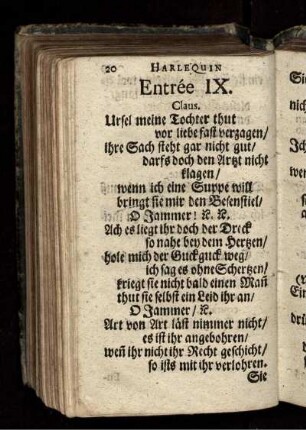 20 HARLEQUIN
Entrée IX.
Claus.
Ursel meine Tochter thut
vor liebe fast verzagen/
ihre Sach steht gar nicht gut/
darfs doch den Artzt nicht
klagen/
wenn ich eine Suppe will
bringt sie mir den Besenstiel/
O Jammer! ꝛc. ꝛc.
Ach es liegt ihr doch der Dreck
so nahe bey dem Hertzen/
hole mich der Guckguck weg/
ich sag es ohne Schertzen/
kriegt sie nicht bald einen Mañ
thut sie selbst ein Leid ihr an/
O Jammer/ ꝛc.
Art von Art läst nim̃er nicht/
es ist ihr angebohren/
weñ ihr nicht ihr Recht geschicht/
so ists mit ihr verlohren.
Sie